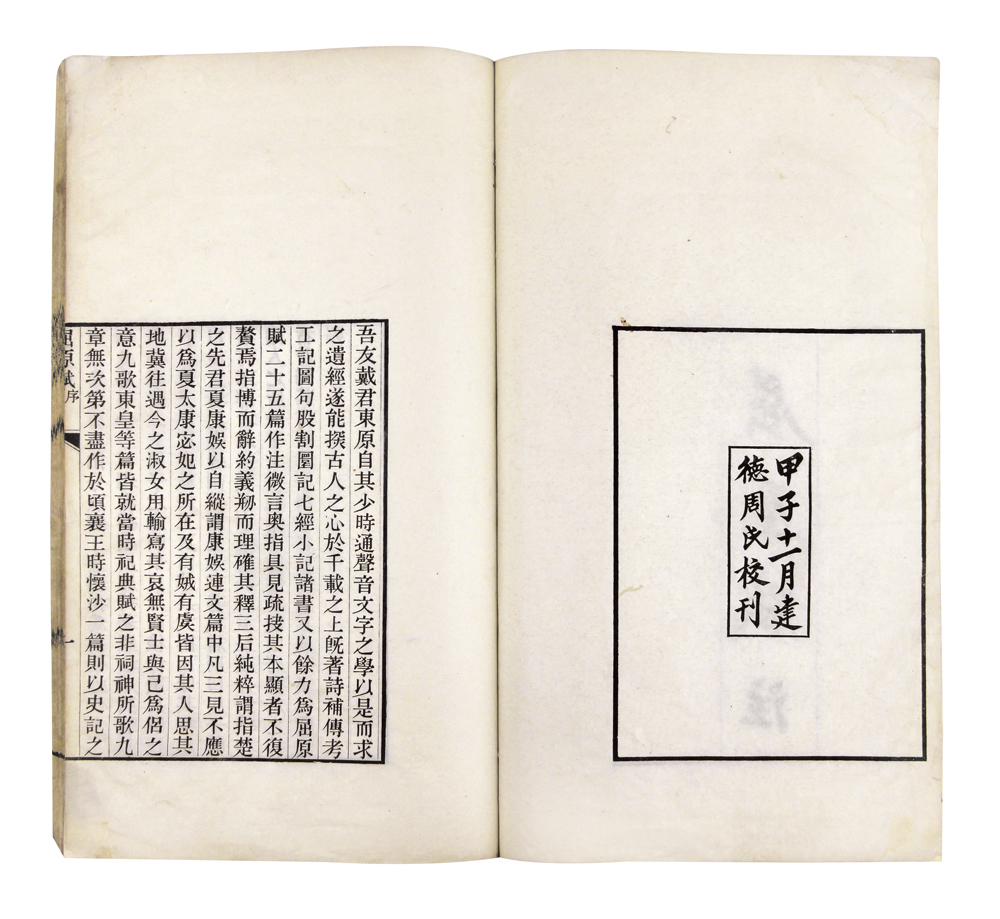 甲子十一月建
德周氏校刊
吾友戴君東原自其少時通聲音文字之學以是而求
之遺經遂能撰古人之心於千載之上旣著詩補傳考
工記圖句股割圜記七經小記諸書又以餘力爲屈原
賦二十五篇作注微言奧指具見疏抉其本顯者不復
贅焉指博而辭約義剙而理確其釋三后純粹謂指楚
之先君夏康娛以自縱謂康娛連文篇中凡三見不應
以爲夏太康宓妃之所在及有娀有虞皆因其人思其
地冀往遇今之淑女用輸寫其哀無賢士與己爲侶之
意九歌東皇等篇皆就當時祀典賦之非祠神所歌九
章無次第不盡作於頃襄王時懷沙一篇則以史記之
屈原賦序
一